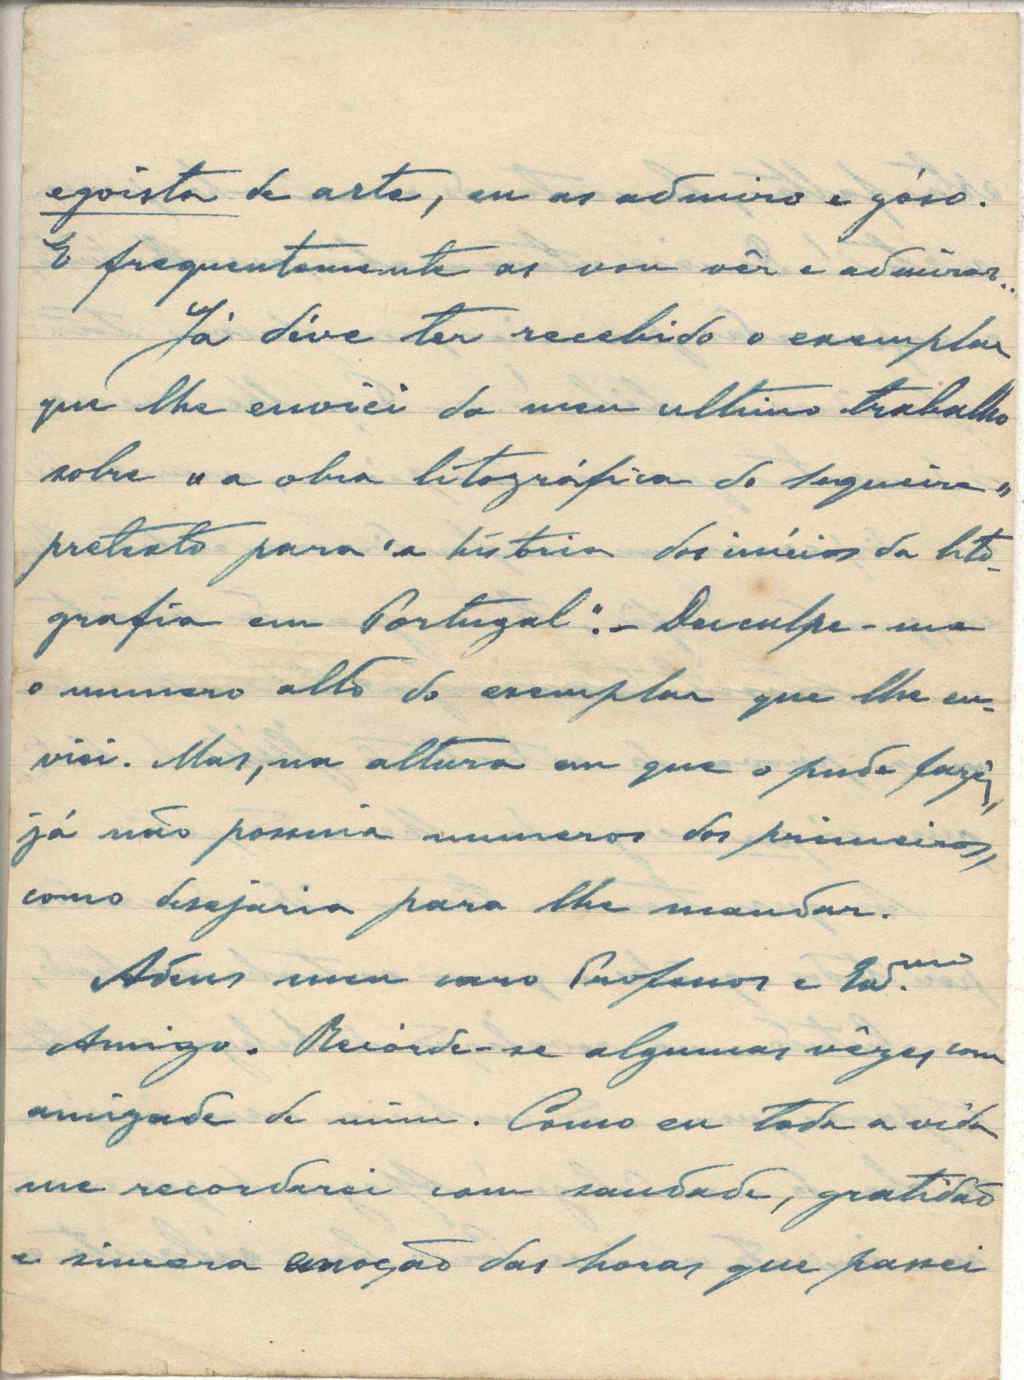 egoista de arte, eu as admiro e góso.
E frequentemente as vou vêr e admirar..
Já déve ter recebido o exemplar
que lhe enviei do meu ultimo trabalho
sobre "a obra litográfica de Sequeira"
pretexto para "a história dos inícios da lito-
grafia em Portugal".- Desculpe-me
o numero alto do exemplar que lhe en-
viei. Mas, na altura em que o pude fazêr,
já não possuia numeros dos primeiros,
como desejaria para lhe mandar.
Adeus meu caro Professor e Exd.mo
Amigo. Recórde-se algumas vêzes com
amizade de mim. Como eu toda a vida
me recordarei com saudade, gratidão
e sincera emoção das horas que passei